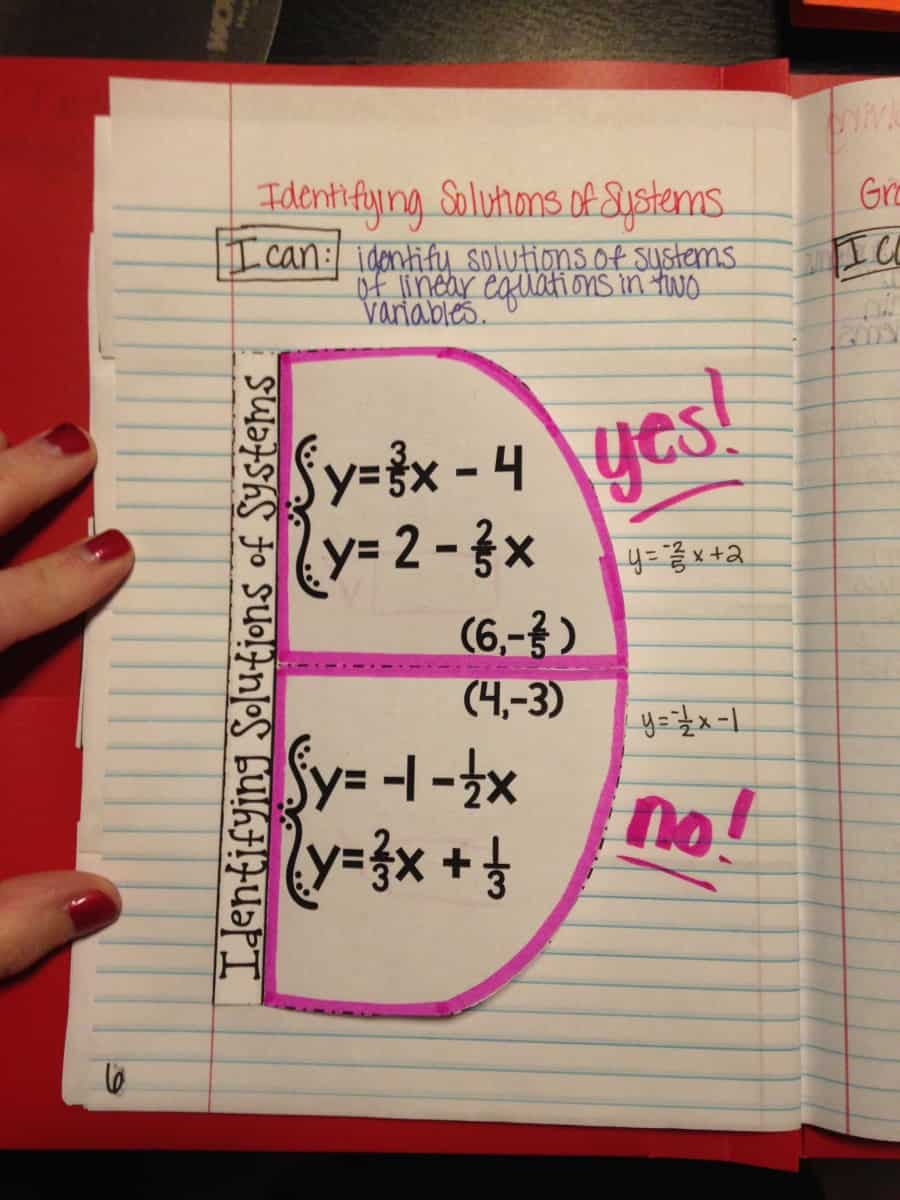 Identifying Solutions of Systems
I can: identify solutions of systems
of linear equations in two
variables.
Identifying Solutions of Systems
y=3/5x - 4
y= 2 - 2/5x
(6,-2/5)
yes!
y=-2/5x+2
(4,-3)
y= -1 - 1/2x
y=2/3x + 1/3
y=-1/2x-1
no!
6
Gra
I c